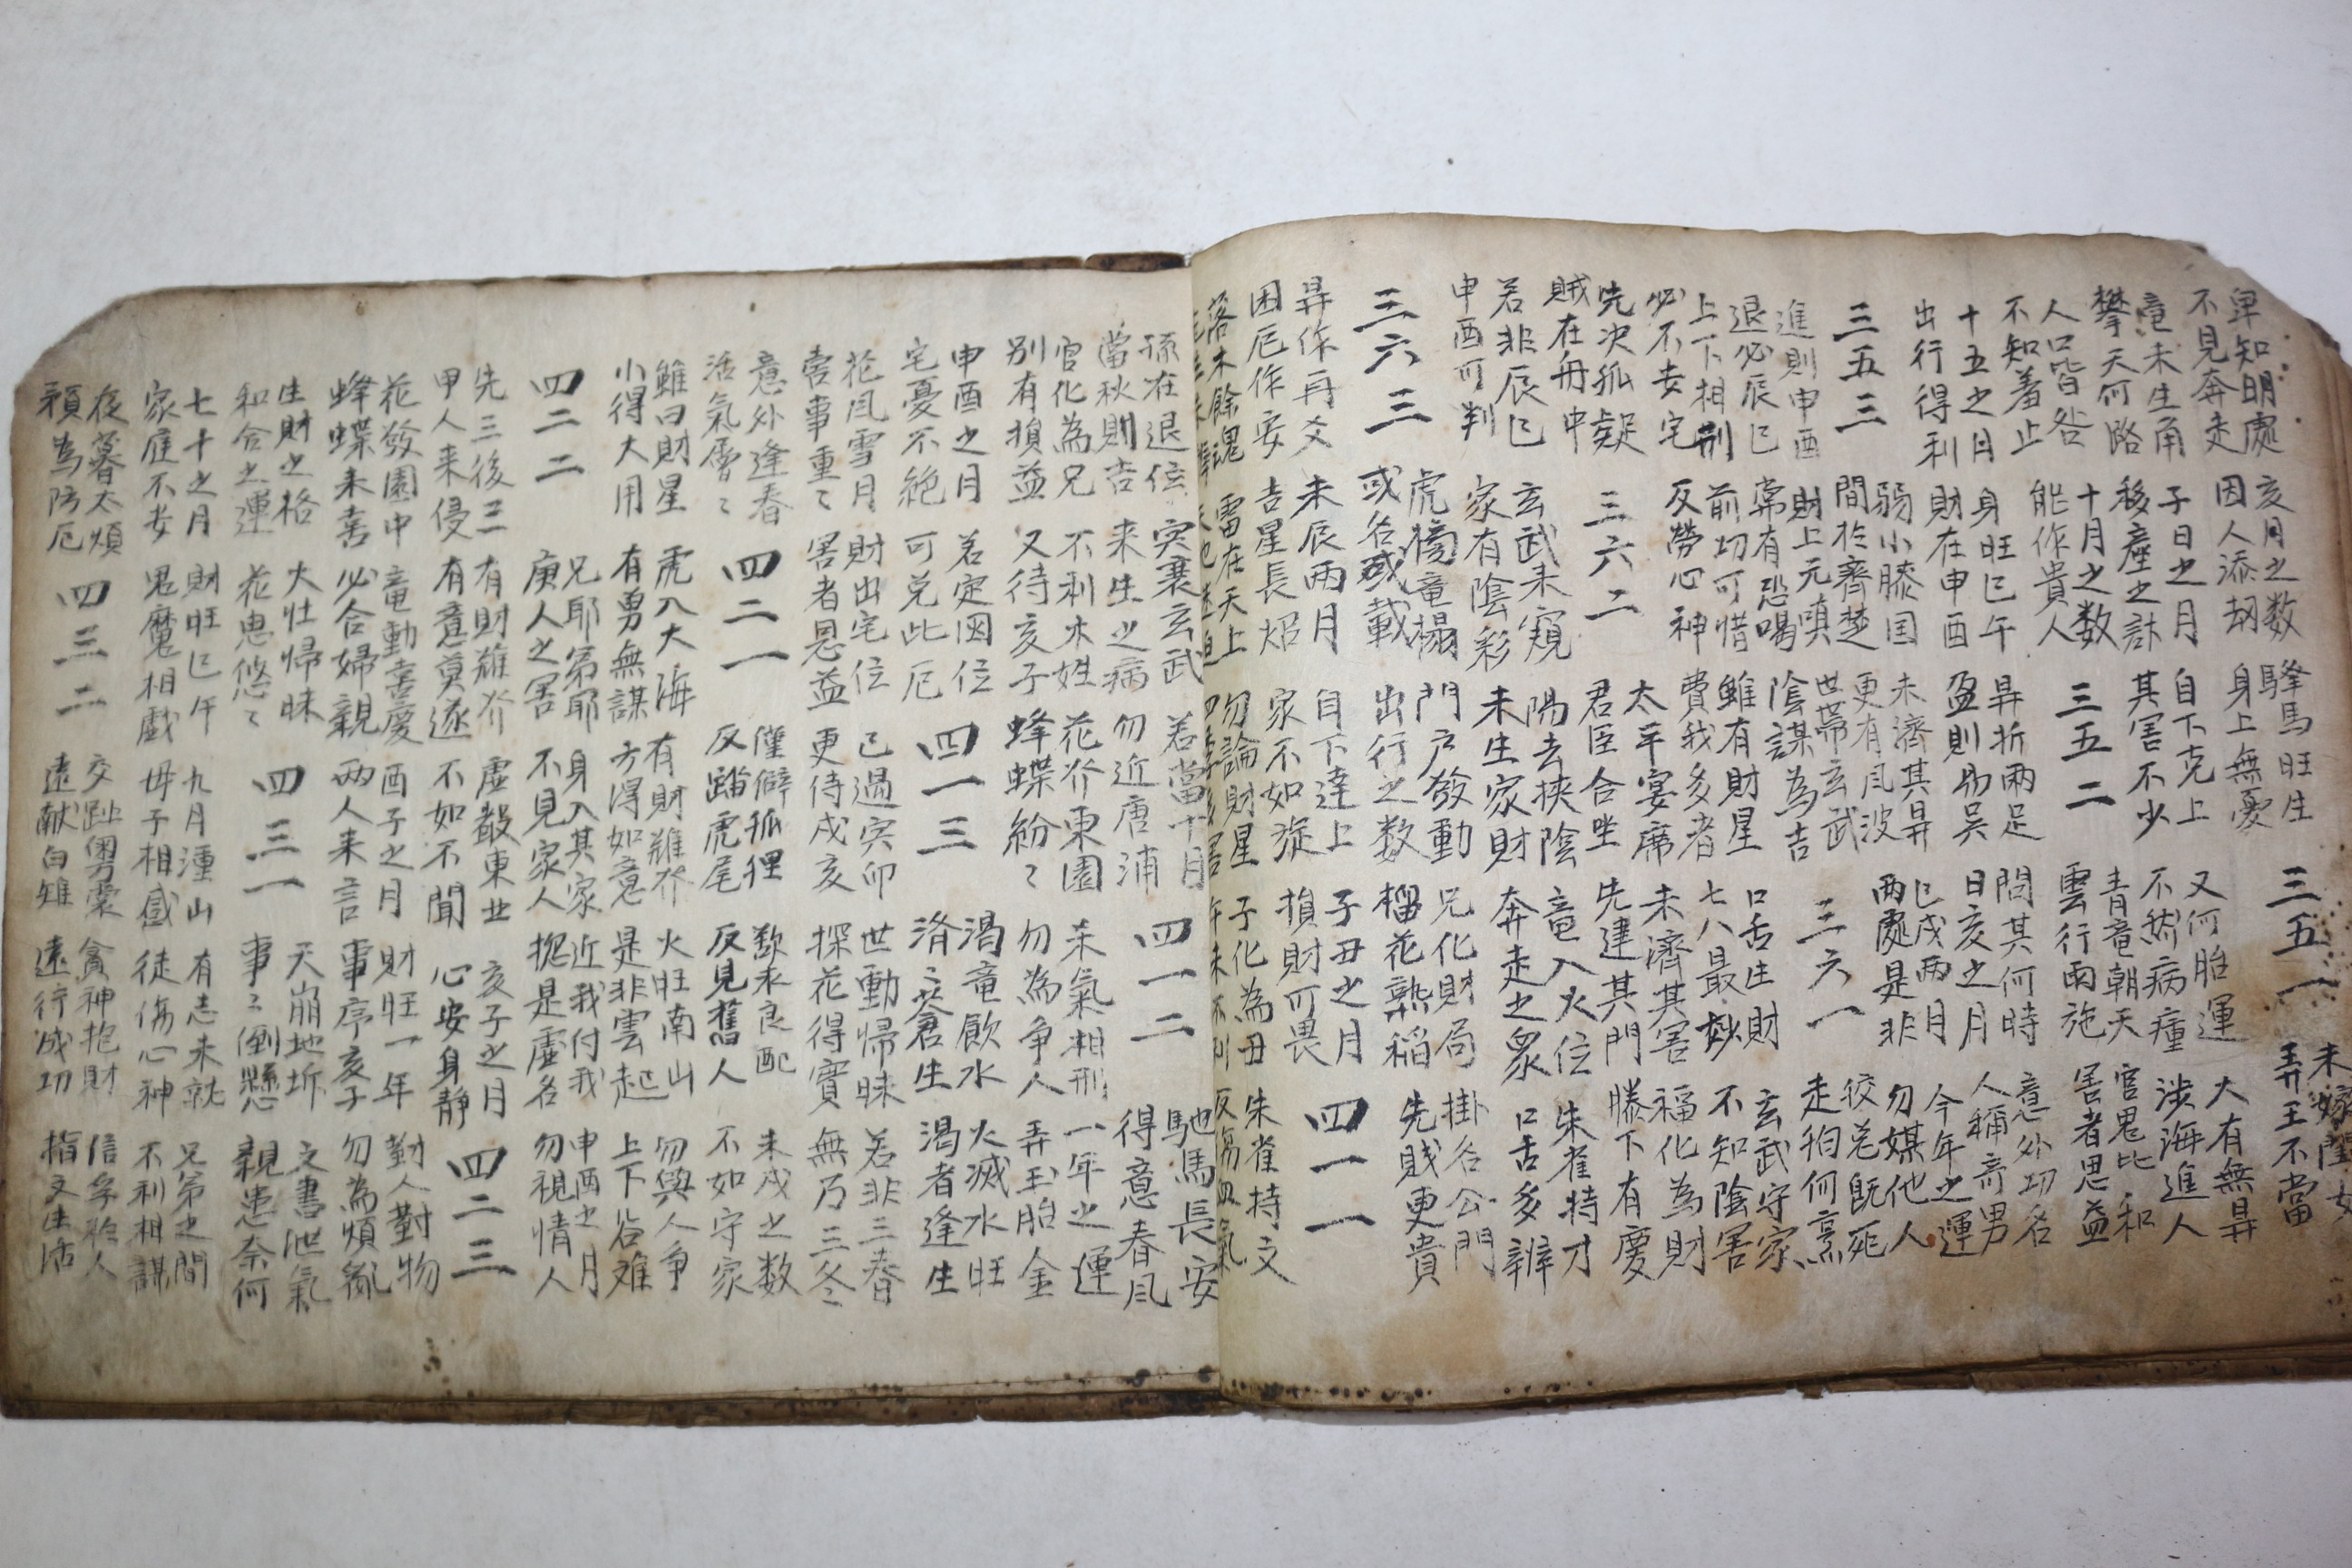 卑知明處
不見奔走
亥月之数
因人添刼
騎馬旺生
身上無憂
三五一
未嫁閨女
弄玉不當
竜未生角
攀天何路
子日之月
移座之訃
自下克上
其害不少
又何胎運
不然病瘇
大有無弄
涉海進人
人口皆咎
不知羞止
十月之数
能作貴人
三五二
青竜朝天
雲行雨施
官鬼比和
害者思益
十五之月
出行得利
身旺巳午
財在申酉
弄折兩足
盈則昜吴
問其何時
日亥之月
意外功名
人稱奇男
三五三
弱小滕国
間於齊楚
未濟其弄
更有風波
巳戌两月
两處是非
今年之運
勿媒他人
進則申酉
退必辰巳
財上元嗔
常有恐喝
世帯玄武
陰謀為吉
三六一
狡兎既死
走狗何烹
上下相剋
必不安宅
前功可惜
反勞心神
雖有財星
費我多者
口舌生財
七八最妙
玄武守家
不知陰害
先决狐疑
賊在舟中
三六二
太平宴席
君臣合坐
未濟其害
先建其門
福化為財
膝下有慶
若非辰巳
申酉可判
玄武未窺
家有陰彩
陽去挾陰
未生家財
竜入火位
奔走之衆
朱雀特才
口舌多辨
三六三
虎榜竜榻
或名或載
門户發動
出行之数
兄化財局
榴花熟稲
掛名公門
先賎更貴
弄作再文
困厄作安
未辰两月
吉星長炤
自下達上
家不如旋
子丑之月
損財可畏
四一一
落木餘魂
雷在天上
勿論財星
子化為丑
午未不利
朱雀持文
反傷血氣
孫在退位
當秋則吉
突裏玄武
来生之病
若當十月
勿近唐浦
四一二
馳馬長安
得意春風
官化為兄
别有損益
不利木姓
又待亥子
花芥東園
蜂蝶紛々
杀氣相刑
勿為争人
一年之運
弄玉胎金
申酉之月
宅憂不絶
若定因位
可兑此厄
四一三
渴竜飲水
洛々蒼生
火滅水旺
渴者逢生
花風雪月
害事重々
財出宅位
害者恩益
已過寅卯
更待戌亥
世動帰昧
探花得寳
若非三春
無乃三冬
意外逢春
活氣層々
四二一
僅僻狐狸
反踏虎尾
歎釆良配
反見舊人
未戌之数
不如守家
雖曰財星
小得大用
虎入大海
有勇無謀
有財雖芥
方得如意
火旺南山
是非雲起
勿與人争
上下谷难
四二二
兄耶弟耶
庚人之害
身入其家
不見家人
近我付我
摠是虚名
申酉之月
勿視情人
先三後三
甲人来侵
有財雖芥
有意莫遂
不如不聞
亥子之月
心安身静
四二三
花發園中
蜂蝶未喜
竜動喜慶
必合婦親
酉子之月
两人来言
財旺一年
事序亥子
對人對物
勿為煩乱
生財之格
和合之運
大壮帰昧
花思悠々
四三一
天崩地坼
事々倒懸
文書泄氣
親患奈何
七十之月
家庭不安
財旺巳午
鬼魔相戯
九月潼山
母子相感
有志未就
徒傷心神
兄弟之間
不利相謀
夜署太煩
預為防厄
四三二
交趾粤裳
遠献白雉
貪神抱財
遠行成功
信字聆人
指文生活